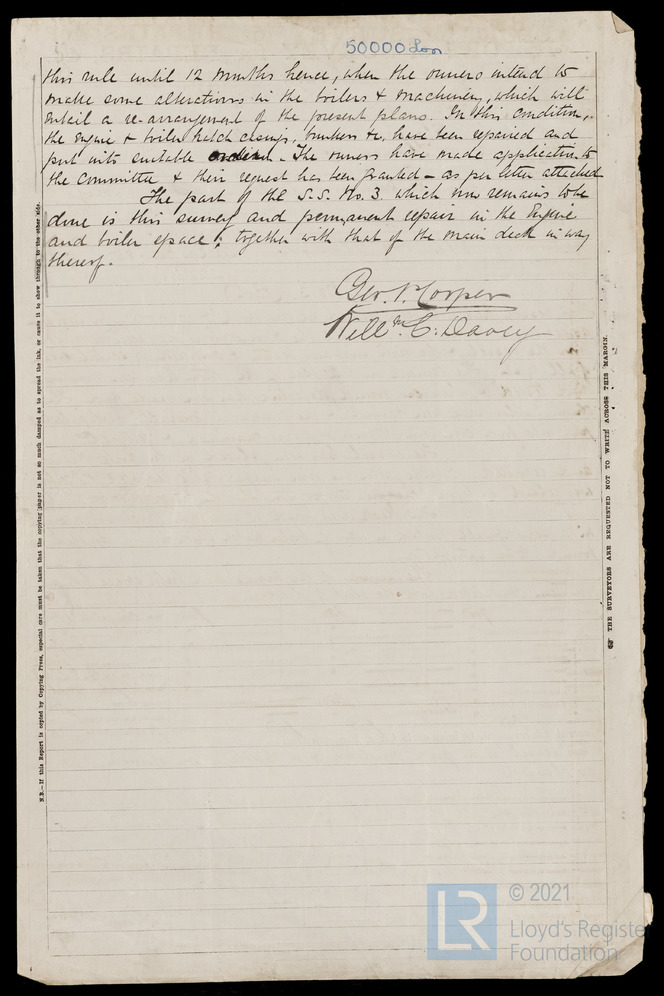 50000 Lon
this rule until 12 months hence, when the owners intend to
make some alterations in the boilers & machinery, which will
entail a re-arrangement of the present plans. In this condition,
the engine & boiler hatch casings, bunkers &c. have been repaired and
put into suitable order. The owners have made application to
the Committee & their request has been granted - as per letter attached
The part of the S.S. No. 3. which now remains to be
done is this survey and permanent repair in the Engine
and boiler space; together with that of the main deck in way
thereof.
Geo. P. Cooper
Willm. C. Davey
N.B.—If this Report is copied by Copying Press, especial care must be taken that the copying paper is not so much damped as to spread the ink, or cause it to show through to the other side.
THE SURVEYORS ARE REQUESTED NOT TO WRITE ACROSS THIS MARGIN.
LR
© 2021
Lloyd's Register
Foundation